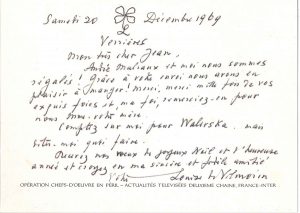 Samedi 20 Décembre 1969
Verrières
Mon très cher Jean,
André Malraux et moi nous sommes
régalés ! Grâce à votre envoi nous avons eu
plaisir à manger ! Merci, merci mille fois de vos
exquis foies et, ma foi, remerciez-en pour
nous Mme votre mère.
Comptez sur moi pour Walivska mais
dites-moi quoi faire.
Recevez nos vœux de joyeux Noël et d'heureuse
année et croyez en ma sincère et fidèle amitié
Votre Louise de Vilmorin
OPÉRATION CHEFS-D'OEUVRE EN PÉRIL – ACTUALITÉS TÉLÉVISÉES DEUXIÈME CHAINE, FRANCE-INTER